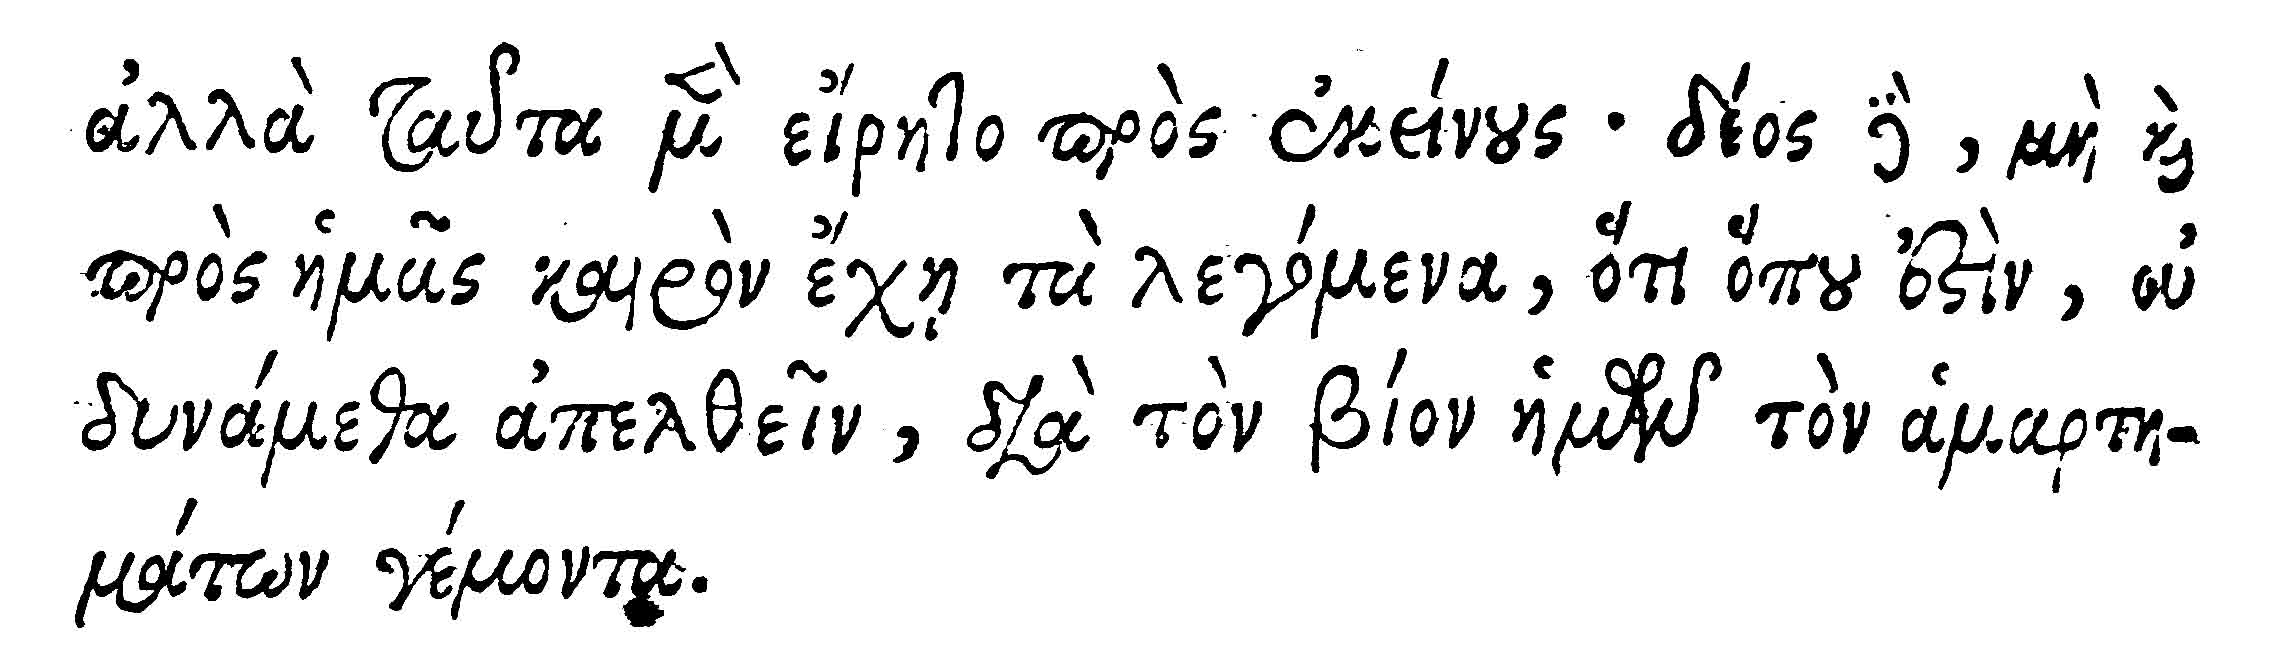 ἀλλὰ ταῦτα μὲν εἴρητο πρὸς ἐκείνους · δέος δὲ, μὴ καὶ
πρὸς ἡμᾶς καιρὸν ἔχῃ τὰ λεγόμενα, ὅτι ὅπου ἐστὶν, οὐ
δυνάμεθα ἀπελθεῖν, διὰ τὸν βίον ἡμῶν τὸν ἁμαρτη-
μάτων γέμοντα.